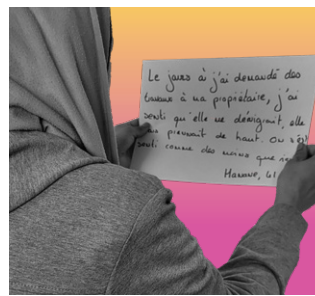 Le jours où j'ai demandé des
travaux à ma propriétaire, j'ai
senti qu'elle me dénigrait, elle
me prennait de haut. On s'est
senti comme des moins que rien
Hanane, 41